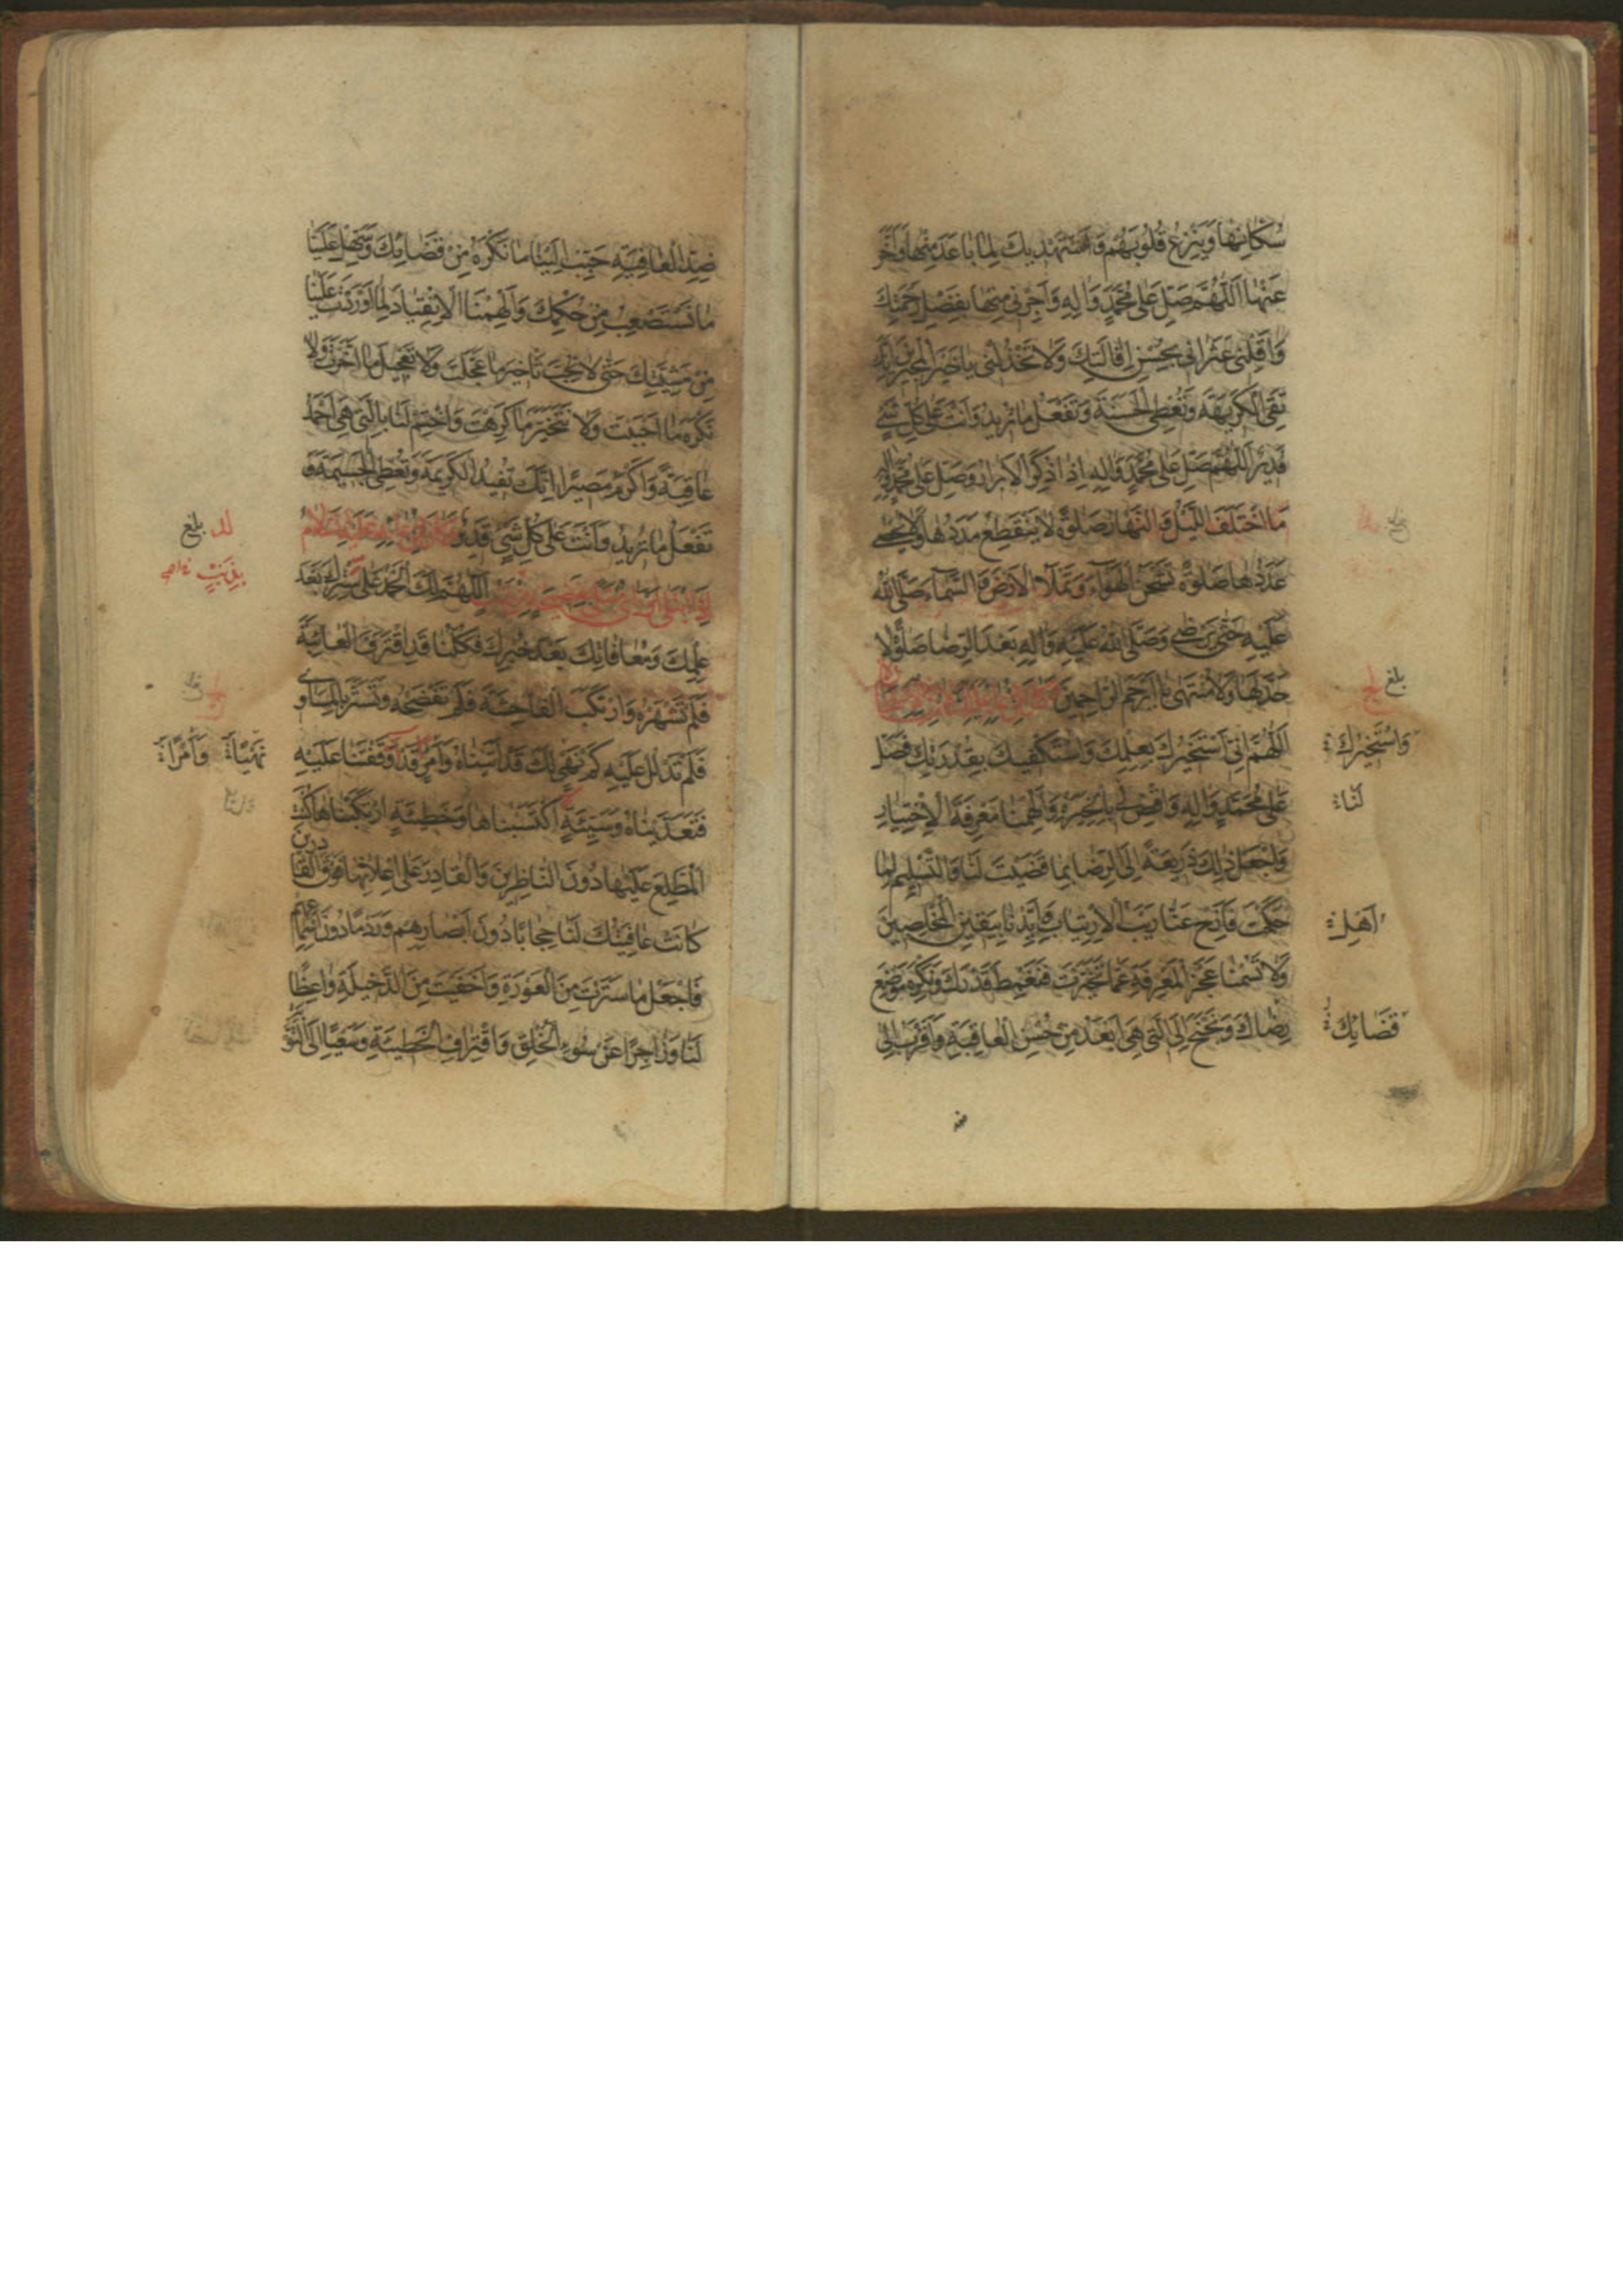 سُكّانِها وَيَنْزِعُ قُلُوبَهُم وَاَسْتَهْديكَ لِما باعَدَ مِنْها وَاَخَّرَ
عَنْها اَللّهُمَّ صَلِّ عَلى مُحَمَّدٍ وَالِهِ وَاَجِرْني مِنْها بِفَضْلِ رَحْمَتِكَ
وَاَقِلْني عَثَراتي بِحُسْنِ اِقالَتِكَ وَلا تَخْذُلْني ياخَيْرَ الْمُجيرينَ اِنَّكَ
تَقِي الْكَريهَةَ وَتُعْطِي الْحَسَنَةَ وَتَفْعَلُ ماتُريدُ وَاَنْتَ عَلى كُلِّ شَيْءٍ
قَديرٌ اَللّهُمَّ صَلِّ عَلى مُحَمَّدٍ وَالِهِ اِذا ذُكِرَ الْاَبْرارُ وَصَلِّ عَلى مُحَمَّدٍ وَالِهِ
مَا اخْتَلَفَ اللَّيْلُ وَالنَّهارُ صَلوةً لايَنْقَطِعُ مَدَدُها وَلايُحْصى
عَدَدُها صَلوةً تَشْحَنُ الْهَواءَ وَتَمْلَأُ الْاَرْضَ وَالسَّماءَ صَلَّى اللهُ
عَلَيْهِ حَتّى يَرْضى وَصَلَّى اللهُ عَلَيْهِ وَالِهِ بَعْدَ الرِّضا صَلوةً لا
حَدَّ لَها وَلا مُنْتَهى يا اَرْحَمَ الرّاحِمينَ
بلغ
اَللّهُمَّ اِنّي اَسْتَخيرُكَ بِعِلْمِكَ وَاَسْتَكْفيكَ بِقُدْرَتِكَ فَصَلِّ
وَاَسْتَخيرُكَ
عَلى مُحَمَّدٍ وَالِهِ وَاقْضِ لي بِالْخِيَرَةِ وَاَلْهِمْنا مَعْرِفَةَ الْاِخْتِيارِ
لَنا
وَاجْعَلْ ذلِكَ ذَريعَةً اِلَى الرِّضا بِما قَضَيْتَ لَنا وَالتَّسْليمِ لِما
حَكَمْتَ فَاَزِحْ عَنّا رَيْبَ الْاِرْتِيابِ وَاَيِّدْنا بِيَقينِ الْمُخْلِصينَ
اَهْلِ
وَلا تَسُمْنا عَجْزَ الْمَعْرِفَةِ عَمّا تَخَيَّرْتَ فَنَغْمِطَ قَدْرَكَ وَنَكْرَهَ مَوْضِعَ
رِضاكَ وَنَجْنَحَ اِلَى الَّتي هِيَ اَبْعَدُ مِنْ حُسْنِ الْعاقِبَةِ وَاَقْرَبُ اِلى
قَضائِكَ
ضِدِّ الْعافِيَةِ حَبِّبْ اِلَيْنا ما نَكْرَهُ مِنْ قَضائِكَ وَسَهِّلْ عَلَيْنا
ما نَسْتَصْعِبُ مِنْ حُكْمِكَ وَاَلْهِمْنَا الْاِنْقِيادَ لِما اَوْرَدْتَ عَلَيْنا
مِنْ مَشِيَّتِكَ حَتّى لانُحِبَّ تَأْخيرَ ما عَجَّلْتَ وَلا تَعْجيلَ ما اَخَّرْتَ وَلا
نَكْرَهَ ما اَحْبَبْتَ وَلا نَتَخَيَّرَ ما كَرِهْتَ وَاخْتِمْ لَنا بِالَّتي هِيَ اَحْمَدُ
عاقِبَةً وَاَكْرَمُ مَصيرًا اِنَّكَ تُفيدُ الْكَريمَةَ وَتُعْطِي الْجَسيمَةَ وَ
تَفْعَلُ ماتُريدُ وَاَنْتَ عَلى كُلِّ شَيْءٍ قَديرٌ
بلغ
اَللّهُمَّ لَكَ الْحَمْدُ عَلى سَتْرِكَ بَعْدَ
عِلْمِكَ وَمُعافاتِكَ بَعْدَ خُبْرِكَ فَكُلُّنا قَدِ اقْتَرَفَ الْعائِبَةَ
فَلَمْ تَشْهَرْهُ وَارْتَكَبَ الْفاحِشَةَ فَلَمْ تَفْضَحْهُ وَتَسَتَّرَ بِالْمَساوي
فَلَمْ تَدْلُلْ عَلَيْهِ كَمْ نَهْيٍ لَكَ قَدْ اَتَيْناهُ وَاَمْرٍ قَدْ وَقَفْتَنا عَلَيْهِ
فَتَعَدَّيْناهُ وَسَيِّئَةٍ اكْتَسَبْناها وَخَطيئَةٍ ارْتَكَبْناها كُنْتَ
الْمُطَّلِعَ عَلَيْها دُونَ النّاظِرينَ وَالْقادِرَ عَلى اِعْلانِها فَوْقَ الْقا
درين
كانَتْ عافِيَتُكَ لَنا حِجابًا دُونَ اَبْصارِهِمْ وَرَدْمًا دُونَ اَسْماعِهِمْ
فَاجْعَلْ ما سَتَرْتَ مِنَ الْعَوْرَةِ وَاَخْفَيْتَ مِنَ الدَّخيلَةِ واعِظًا
لَنا وَزاجِرًا عَنْ سُوءِ الْخُلْقِ وَاقْتِرافِ الْخَطيئَةِ وَسَعْيًا اِلَى التَّوْ